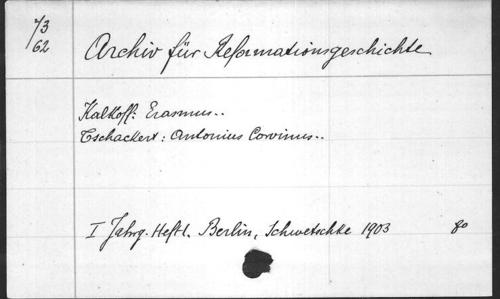 73
62
Archiv für Reformationsgeschichte
Kalkoff: Erasmus..
Tschackert: Antonius Corvinus..
I Jahrg. Heft 1. Berlin, Schwetschke 1903 8o